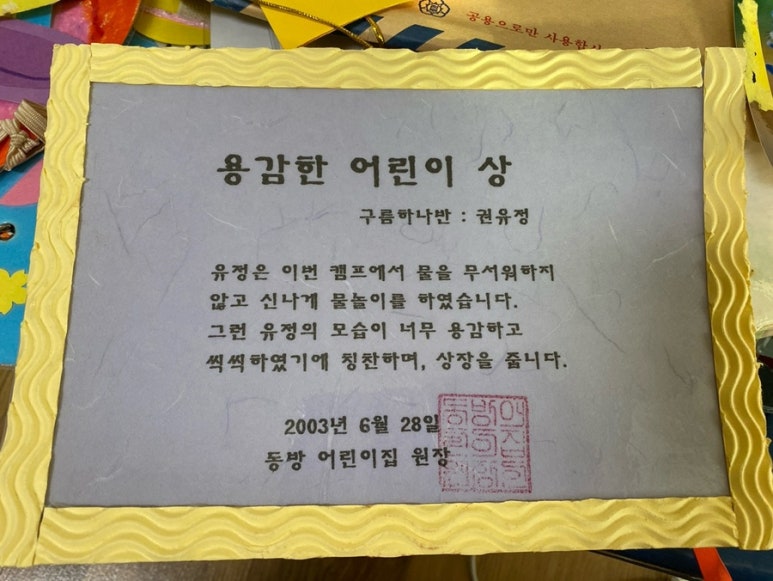 공용으로만 사용합시
용감한 어린이 상
구름하나반 : 권유정
유정은 이번 캠프에서 물을 무서워하지
않고 신나게 물놀이를 하였습니다.
그런 유정의 모습이 너무 용감하고
씩씩하였기에 칭찬하며, 상장을 줍니다.
2003년 6월 28일
동방 어린이집 원장